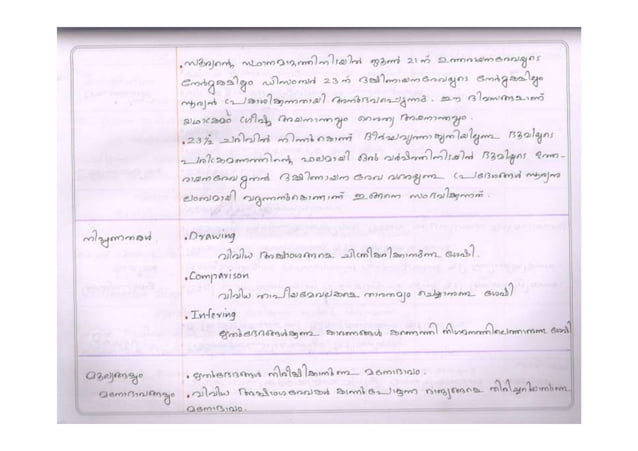 • സൂര്യന്റെ സ്ഥാനമാറ്റത്തിനിടയിൽ ജൂൺ 21 ന് ഉത്തരായനരേഖയുടെ
നേർമുകളിലും ഡിസംബർ 23 ന് ദക്ഷിണായനരേഖയുടെ നേർമുകളിലും
സൂര്യൻ പ്രകാശിക്കുന്നതായി അനുഭവപ്പെടുന്നു. ഈ ദിവസങ്ങളാണ്
യഥാക്രമം ഗ്രീഷ്മ അയനാന്തവും ശൈത്യ അയനാന്തവും.
• 23½ ചരിവിൽ നിന്നുകൊണ്ട് ഭൂമിയുടെ
പരിക്രമണത്തിന്റെ ഫലമായി ഒരു വർഷത്തിനിടയിൽ ഭൂമിയുടെ ഉത്ത-
രായനരേഖ മുതൽ ദക്ഷിണായന രേഖ വരെയുള്ള പ്രദേശങ്ങൾ സൂര്യന്
ലംബമായി വരുന്നതുകൊണ്ടാണ് ഇങ്ങനെ സംഭവിക്കുന്നത്.
നിപുണതകൾ
• Drawing
വിവിധ അക്ഷാംശങ്ങളെ ചിത്രീകരിക്കാനുള്ള ശേഷി.
• Comparison
വിവിധ സാങ്കല്പികരേഖകളെ താരതമ്യം ചെയ്യാനുള്ള ശേഷി
• Infering
ഋതുഭേദങ്ങൾക്കുള്ള കാരണങ്ങൾ കണ്ടെത്തി നിഗമനത്തിലെത്താനുള്ള ശേഷി
മൂല്യങ്ങളും
മനോഭാവങ്ങളും
• ഋതുഭേദങ്ങൾ നിരീക്ഷിക്കാനുള്ള മനോഭാവം.
• വിവിധ അക്ഷാംശരേഖകൾ കടന്നുപോകുന്ന രാജ്യങ്ങളെ തിരിച്ചറിയാനുള്ള
മനോഭാവം.